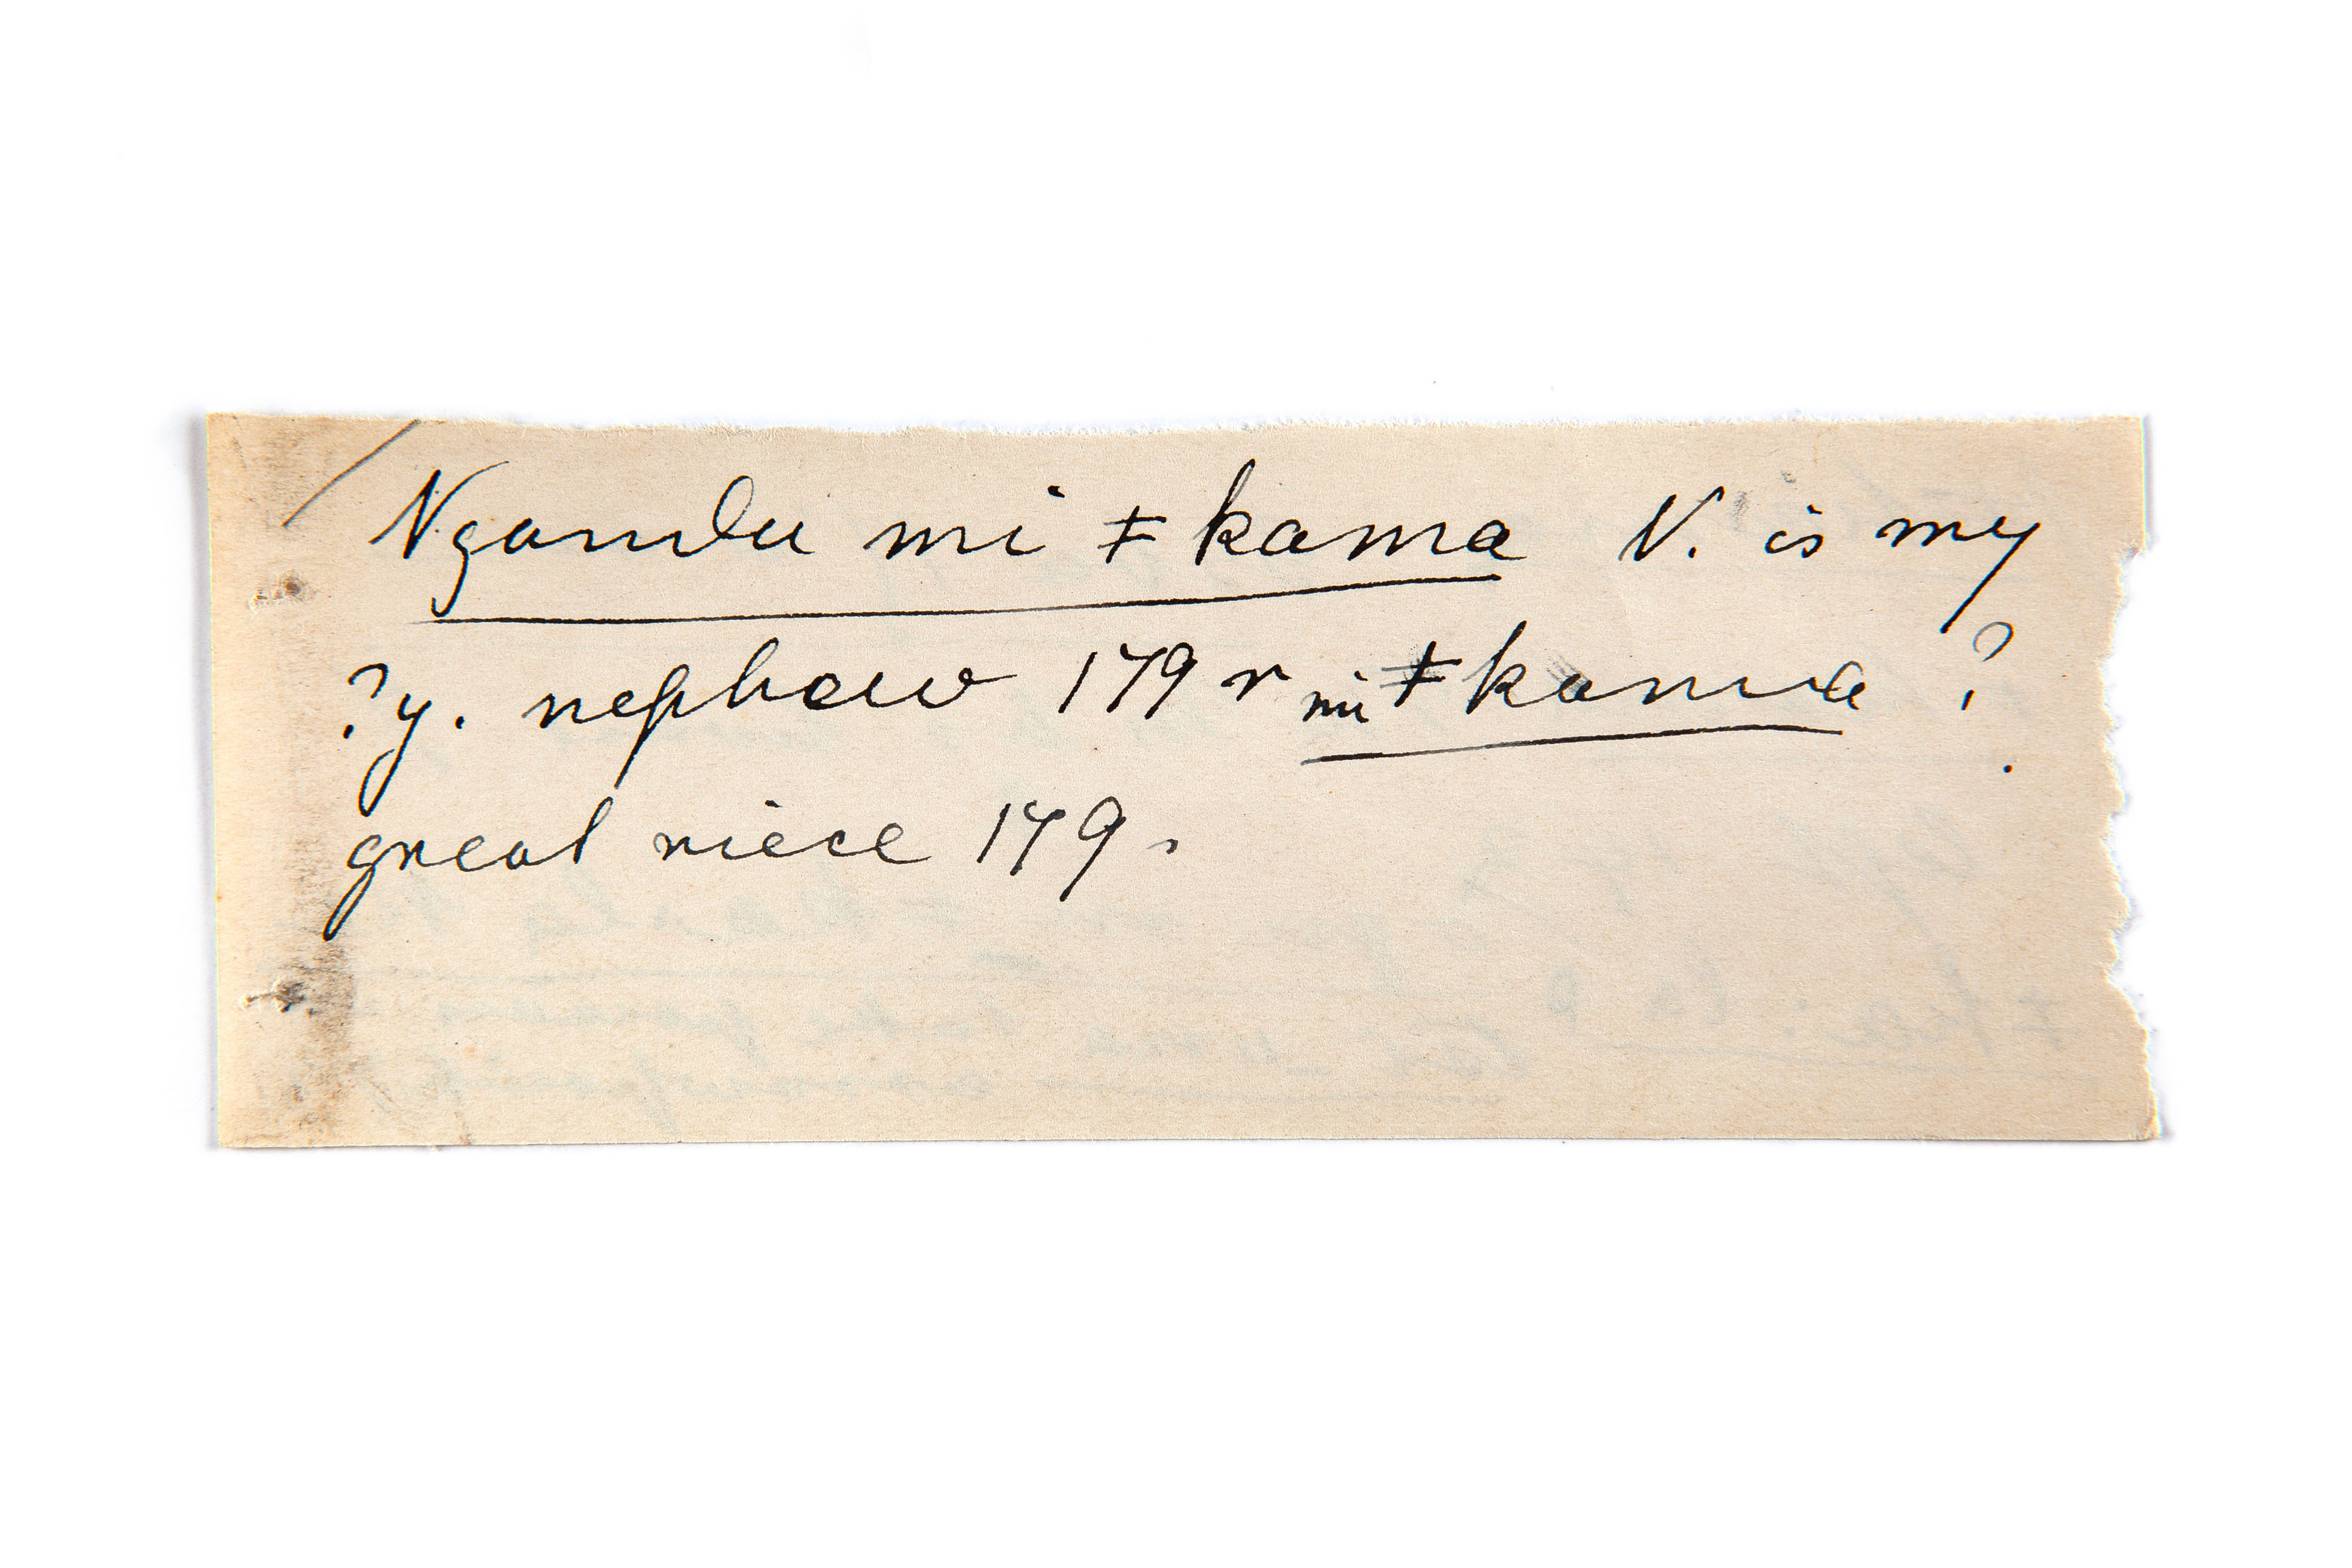 Ngandu mi ǂ kama N. is my
? y. nephew 179 r mi ǂ kama ?
great niece 179.